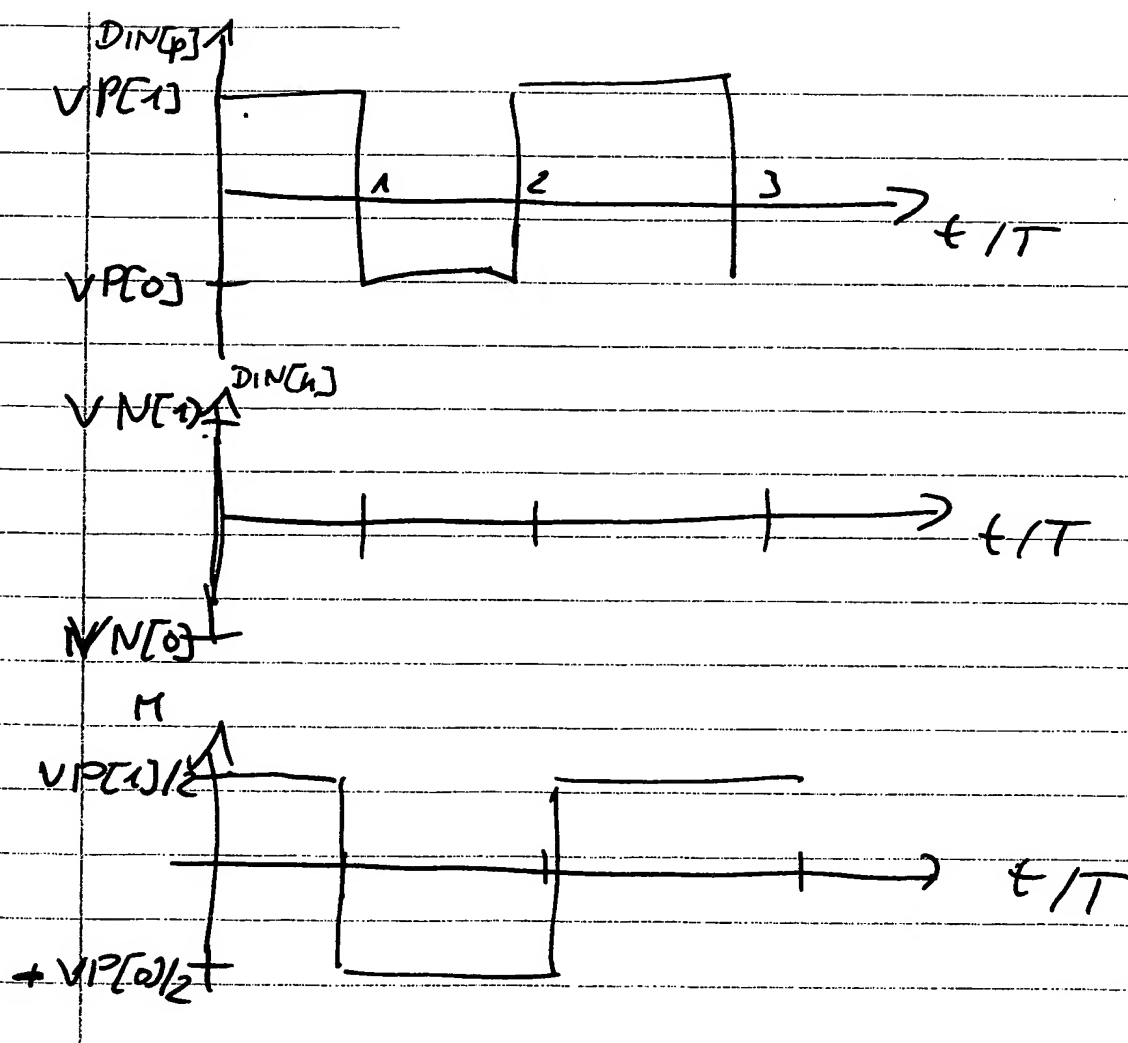 DIN[p]
VP[1]
1 2 3
t/T
VP[0]
DIN[n]
VN[1]
t/T
VN[0]
M
VP[1]/2
t/T
+ VP[0]/2